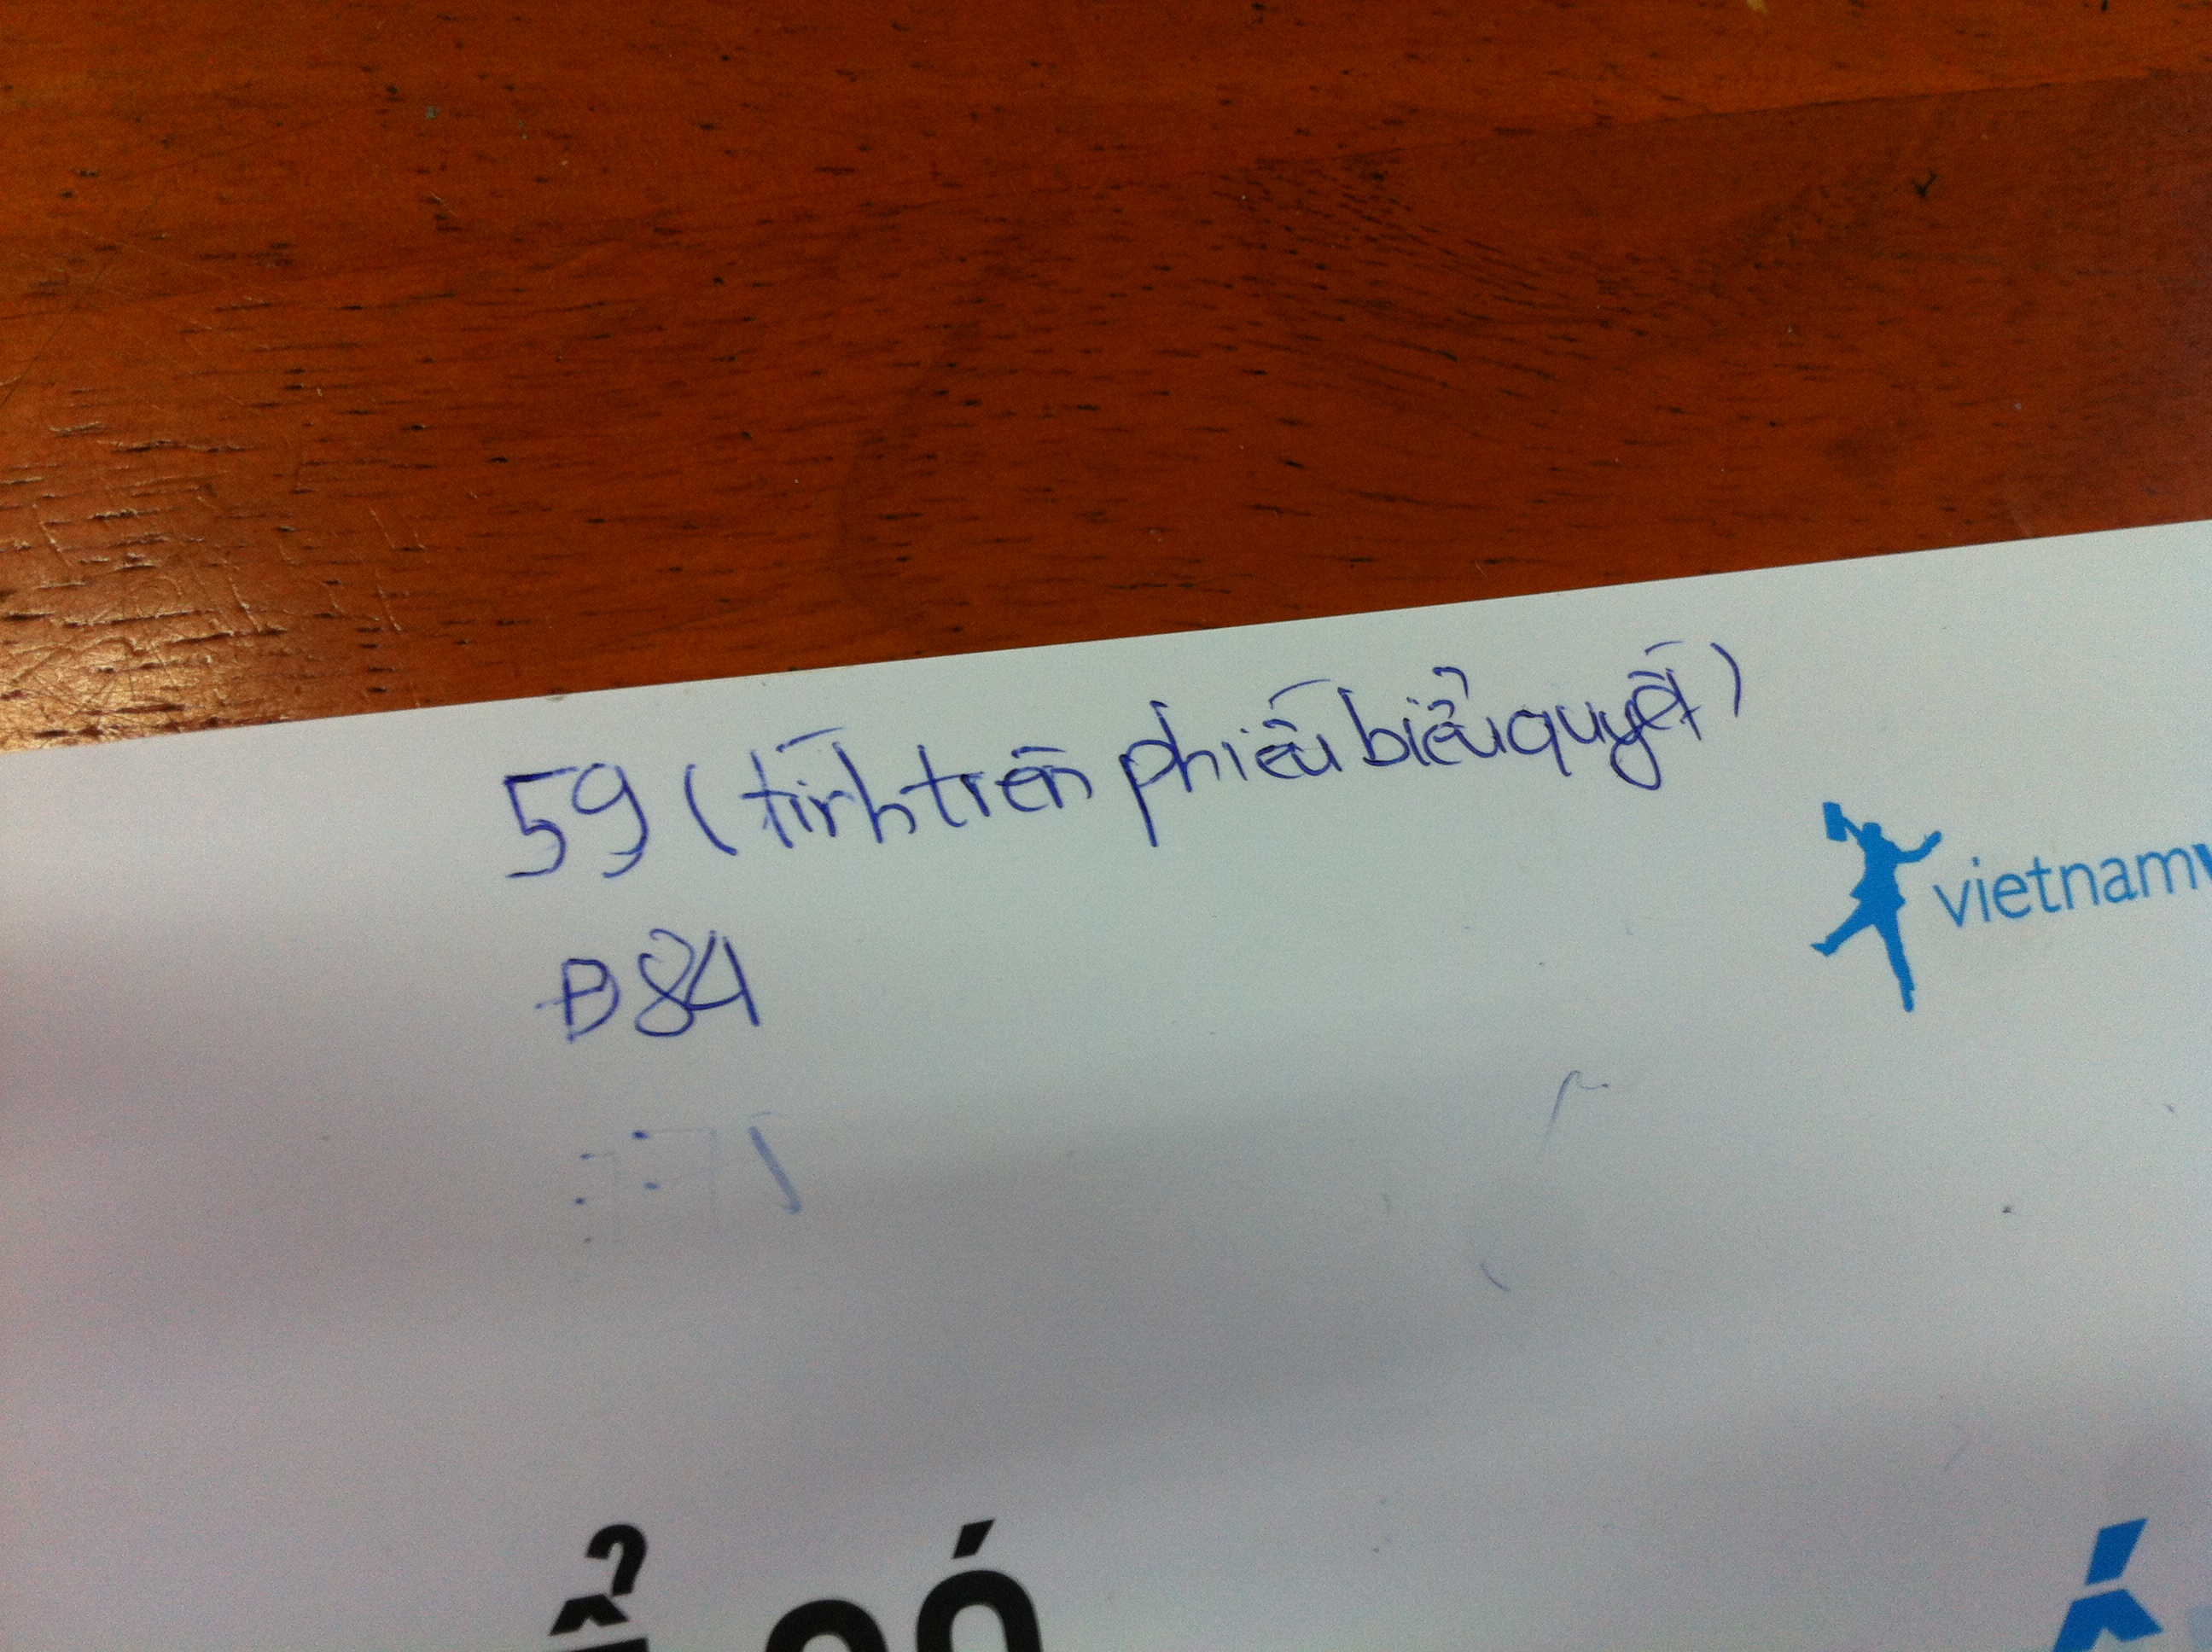 59 (tính trên phiếu biểu quyết)
Đ84
vietnam